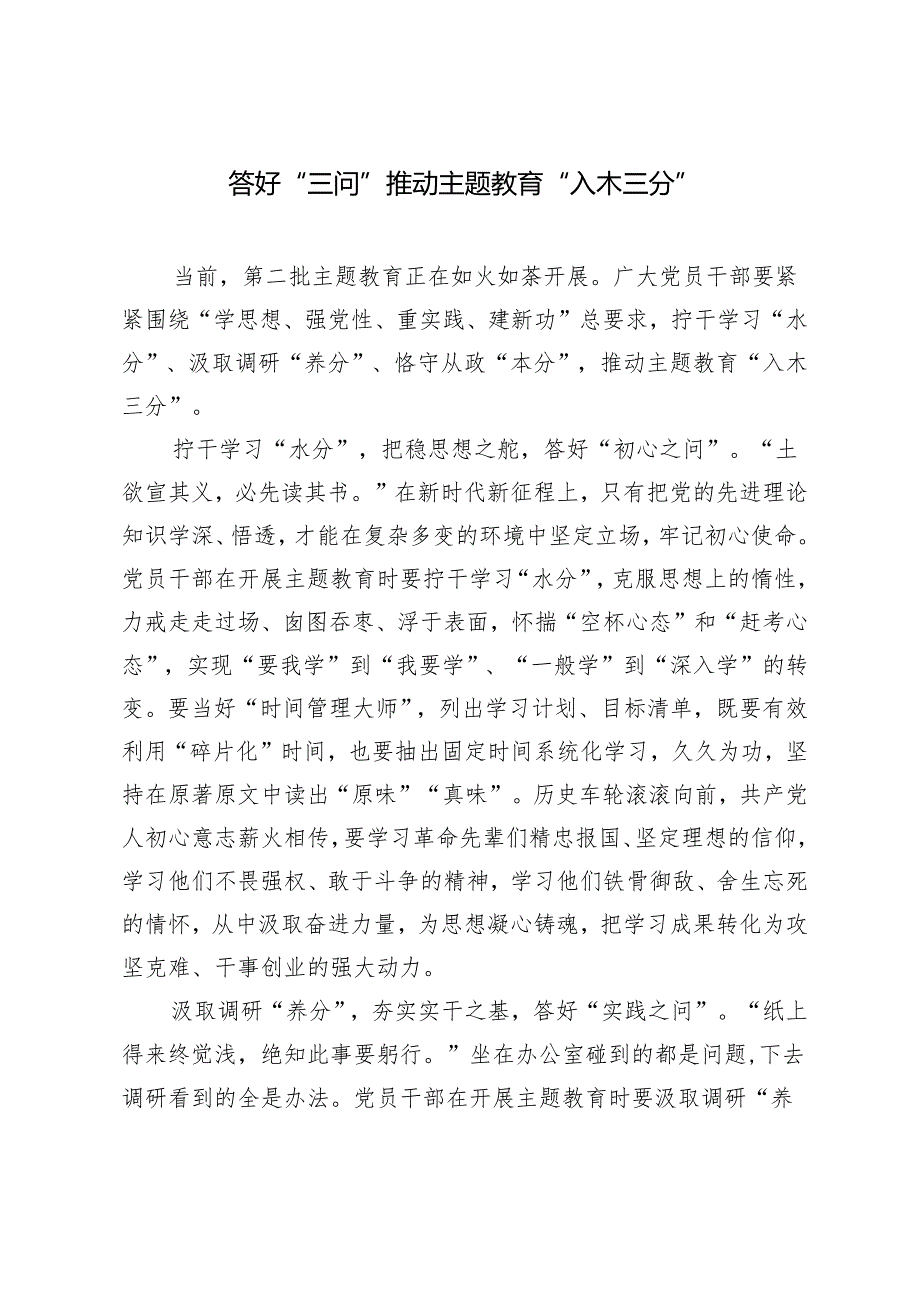 答好“三问”推动主题教育“入木三分”
当前，第二批主题教育正在如火如荼开展。广大党员干部要紧
紧围绕“学思想、强党性、重实践、建新功”总要求，拧干学习“水
分”、汲取调研“养分”、恪守从政“本分”，推动主题教育“入木
三分”。
拧干学习“水分”，把稳思想之舵，答好“初心之问”。“土
欲宣其义，必先读其书。”在新时代新征程上，只有把党的先进理论
知识学深、悟透，才能在复杂多变的环境中坚定立场，牢记初心使命。
党员干部在开展主题教育时要拧干学习“水分”，克服思想上的惰性，
力戒走走过场、囱图吞枣、浮于表面，怀揣“空杯心态”和“赶考心
态”，实现“要我学”到“我要学”、“一般学”到“深入学”的转
变。要当好“时间管理大师”，列出学习计划、目标清单，既要有效
利用“碎片化”时间，也要抽出固定时间系统化学习，久久为功，坚
持在原著原文中读出“原味”“真味”。历史车轮滚滚向前，共产党
人初心意志薪火相传，要学习革命先辈们精忠报国、坚定理想的信仰，
学习他们不畏强权、敢于斗争的精神，学习他们铁骨御敌、舍生忘死
的情怀，从中汲取奋进力量，为思想凝心铸魂，把学习成果转化为攻
坚克难、干事创业的强大动力。
汲取调研“养分”，夯实实干之基，答好“实践之问”。“纸上
得来终觉浅，绝知此事要躬行。”坐在办公室碰到的都是问题,下去
调研看到的全是办法。党员干部在开展主题教育时要汲取调研“养